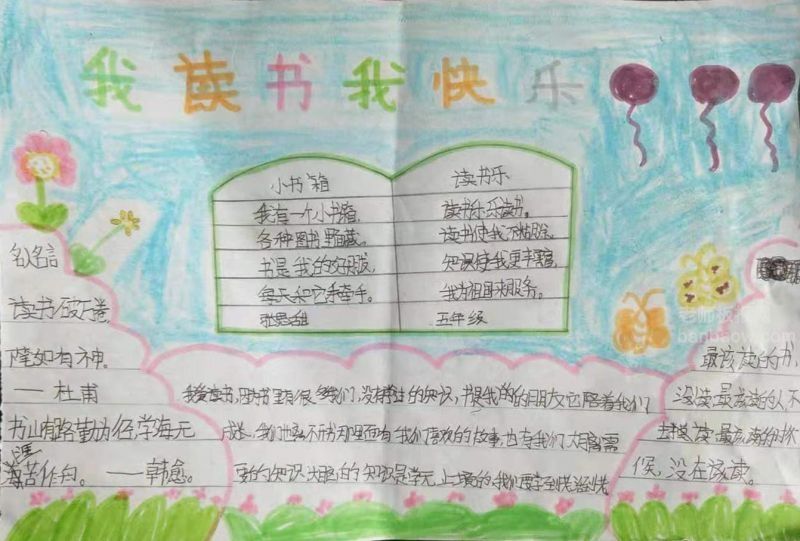 我读书我快乐
小书箱
我有一个小书箱,
各种图书里面藏。
书是我的好朋友,
每天和它手牵手。
读书乐
读书乐乐读书。
读书使我不糊涂。
知识使我更丰富
我为祖国来服务。
五年级
名人名言
读书破万卷
下笔如有神。
——杜甫
书山有路勤为径,学海无
涯苦作舟。——韩愈。
我爱读书,因为书里有很多我们,没有学过的知识,书是我的朋友它陪着我们
成长。我们也离不开书那里面有我们喜欢的故事,也有我们大脑需
要的知识,大脑的知识是学无止境的,我们要学到
最该读的书,
没读最该读的人不
去读最该读的时
候,没在该读。